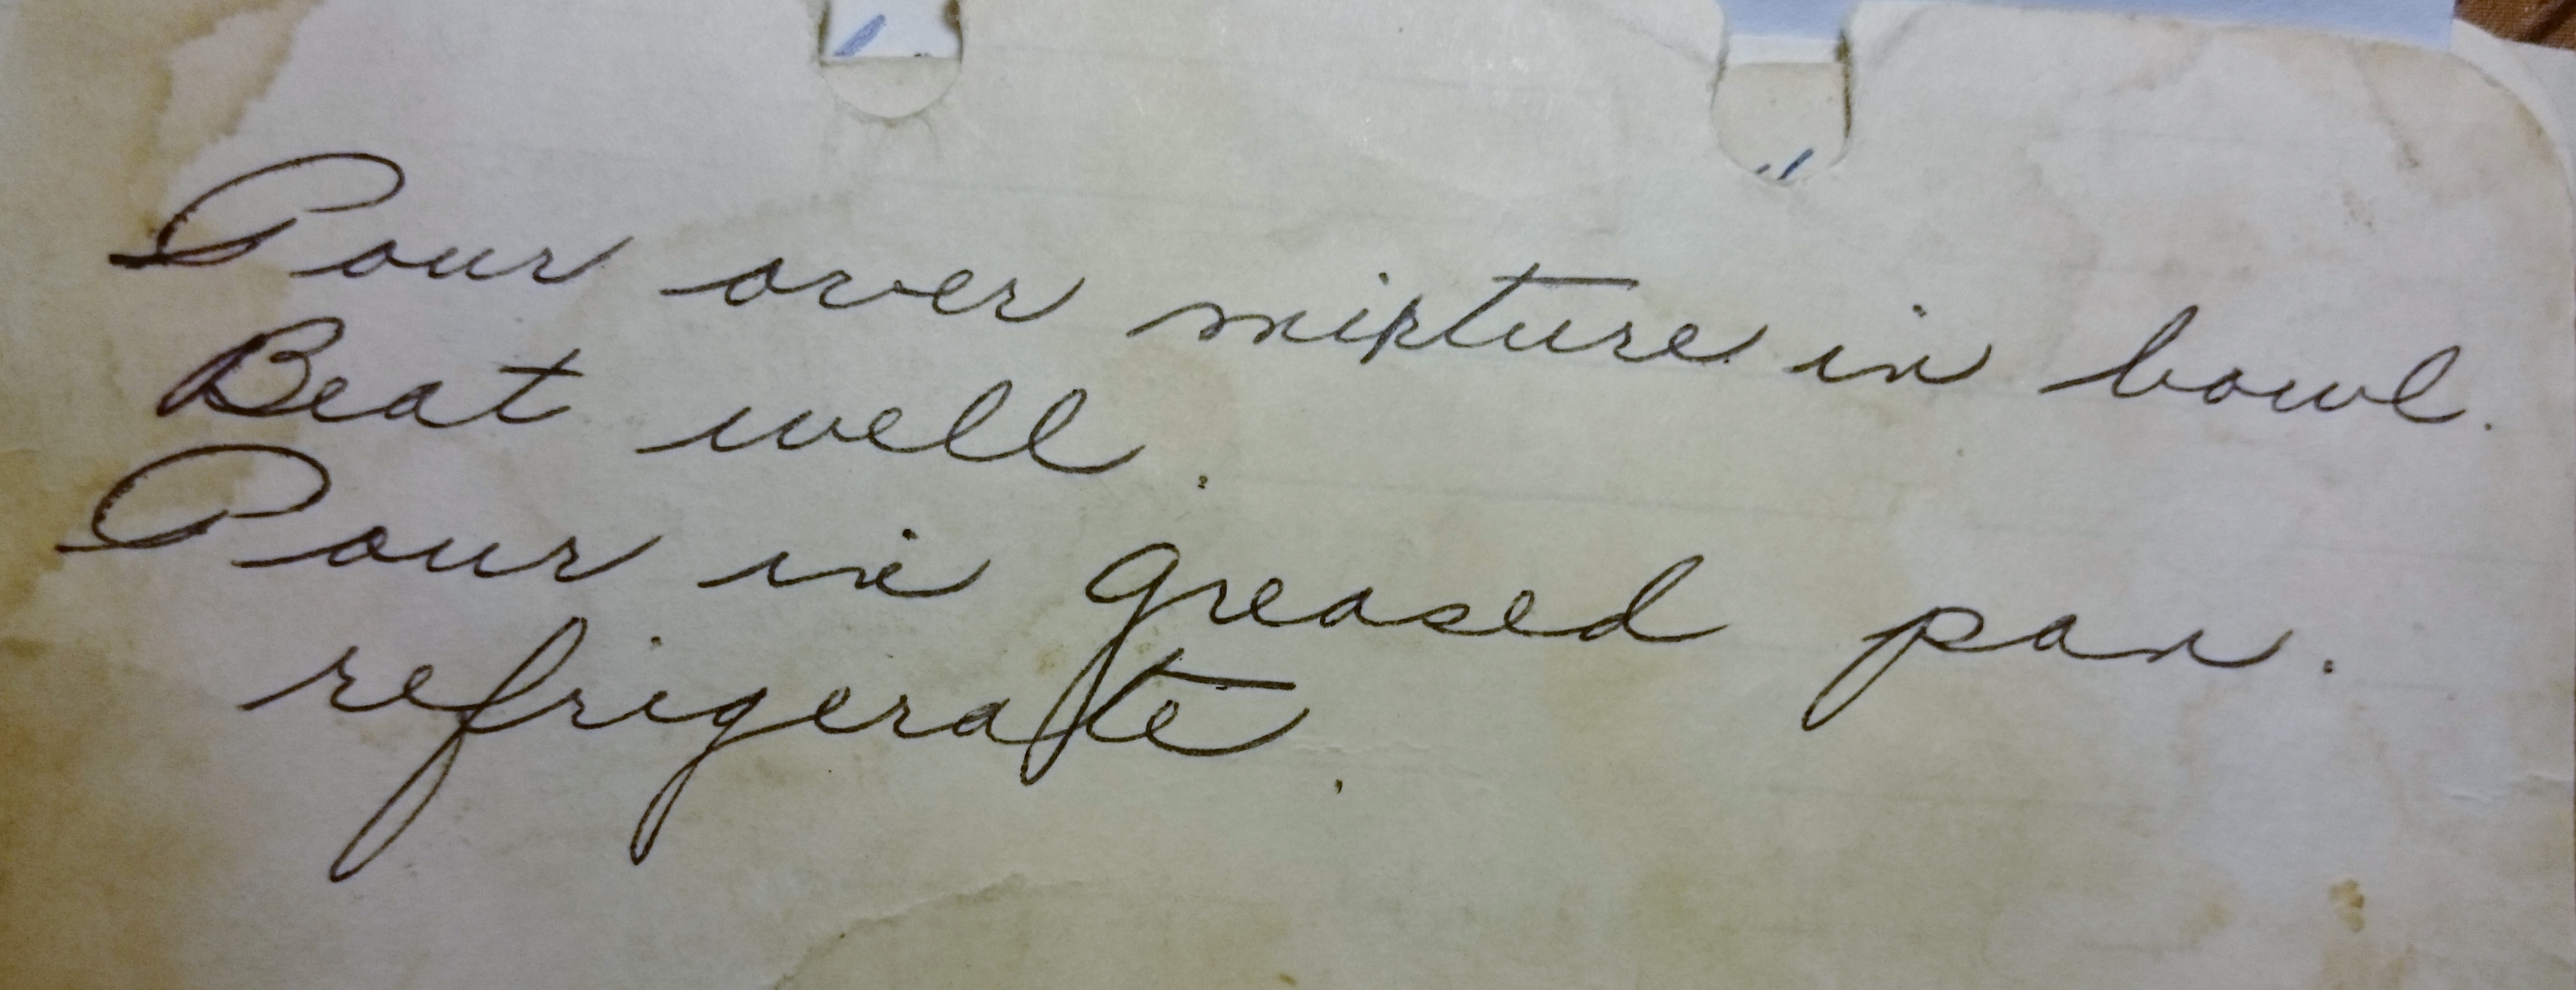 Pour over mixture in bowl.
Beat well.
Pour in greased pan.
refrigerate.